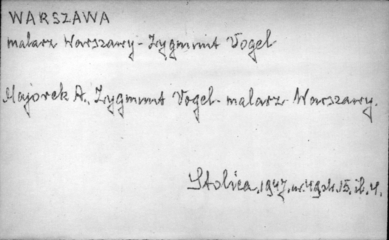 WARSZAWA
malarz Warszawy - Zygmunt Vogel
Majorek A., Zygmunt Vogel - malarz Warszawy.
Stolica. 1947. nr. 49 str. 15. il. 4.